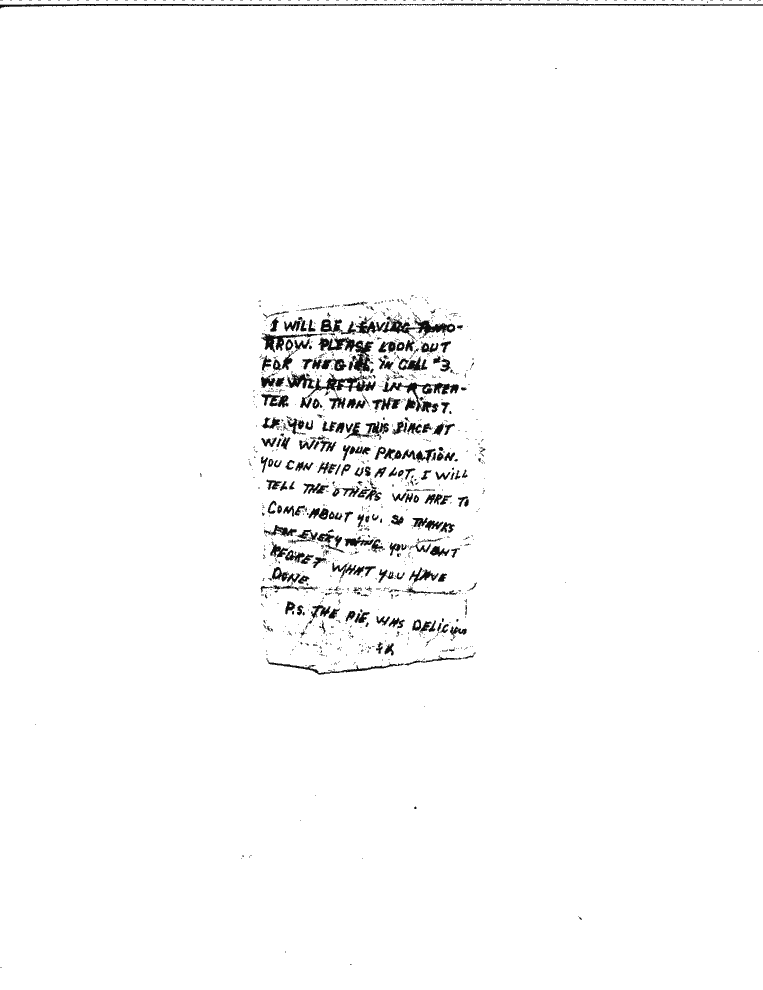 I WILL BE LEAVING TOMO-
RROW. PLEASE LOOK OUT
FOR THE GIRL, IN CELL #3.
WE WILL RETUN IN A GREA-
TER NO. THAN THE FIRST.
IF YOU LEAVE THIS PLACE AT
WILL WITH YOUR PROMATION.
YOU CAN HELP US A LOT. I WILL
TELL THE OTHERS WHO ARE TO
COME ABOUT YOU. SO THANKS
FOR EVERYTHING YOU WONT
REGRET WHAT YOU HAVE
DONE
P.S. THE PIE, WAS DELICIOUS